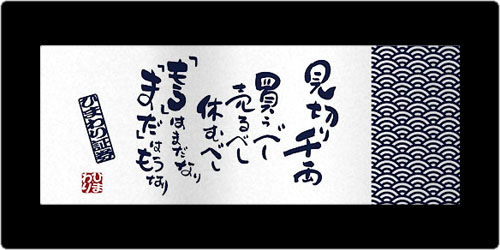 見切り千両
買うべし
売るべし
休むべし
「もう」はまだなり
「まだ」はもうなり
ひまわり証券
ひまわり